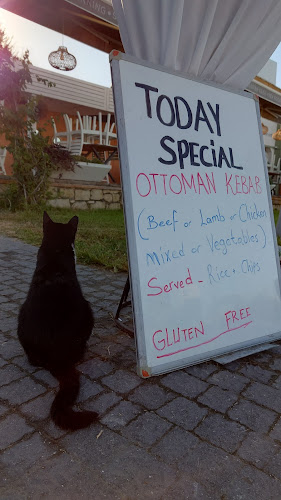 TODAY
SPECIAL
OTTOMAN KEBAB
(Beef or Lamb or Chicken
Mixed or Vegetables)
Served - Rice + Chips
GLUTEN FREE